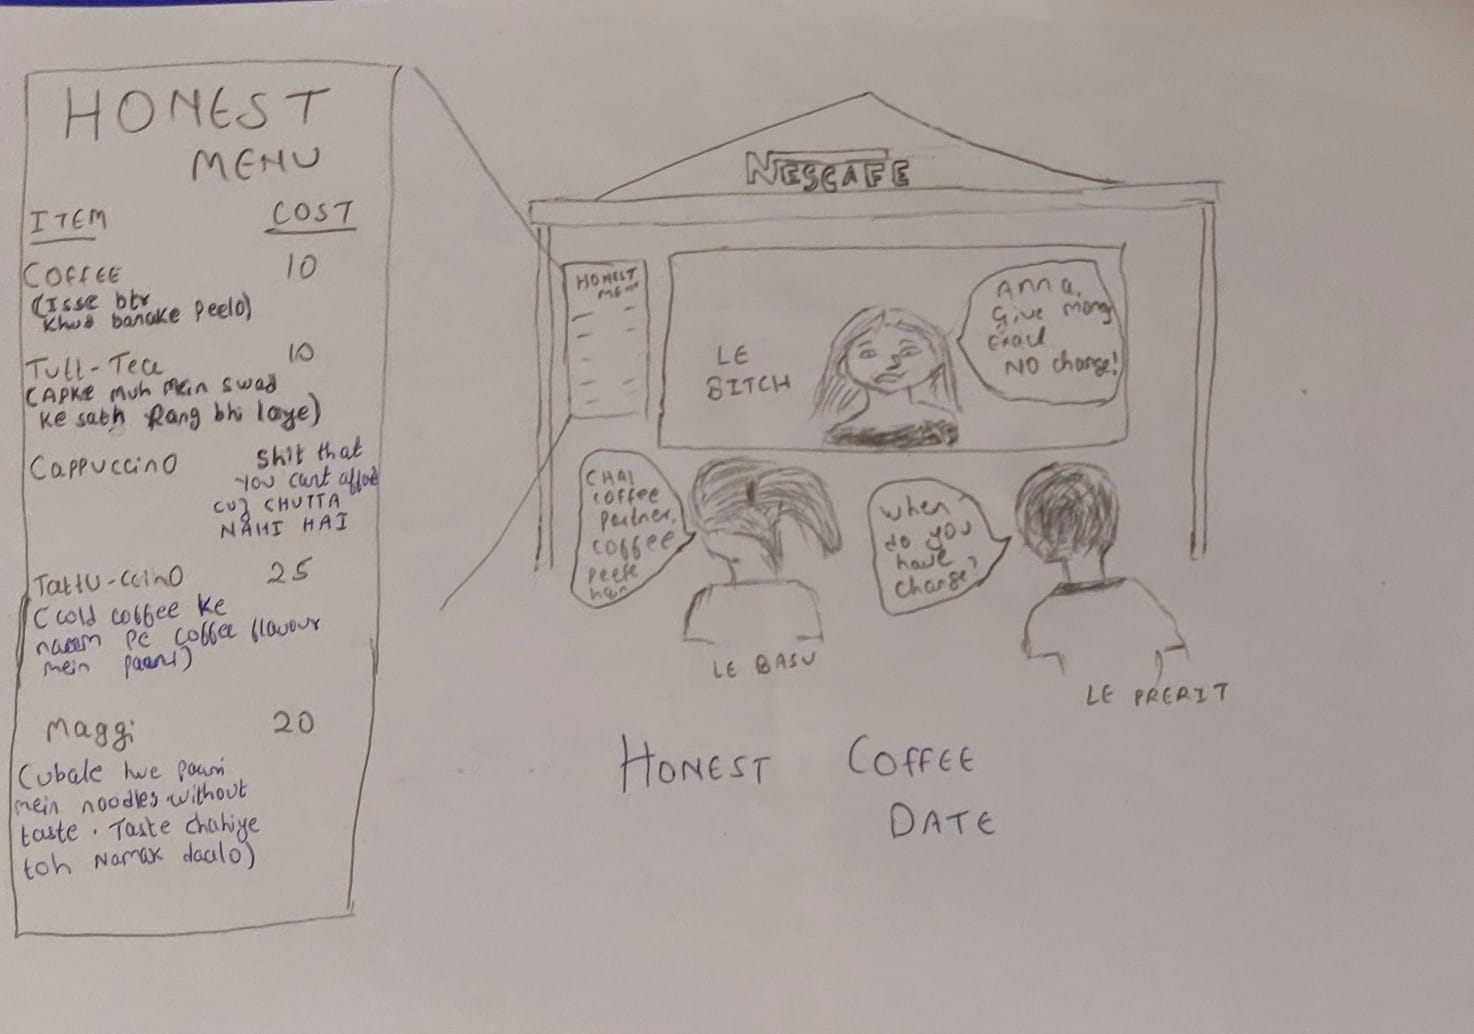 HONEST
MENU
ITEM COST
COFFEE 10
(Isse btr
khud banake peelo)
Tull-Tea 10
(APKE muh mein swad
ke sath Rang bhi laye)
Cappuccino Shit that
you cant afford
cuz CHUTTA
NAHI HAI
Tattu-ccino 25
(cold coffee ke
naam pe coffee flavour
mein paani)
Maggi 20
(ubale hue paani
mein noodles without
taste. Taste chahiye
toh Namak daalo)
NESCAFE
HONEST
MENU
LE
BITCH
Anna,
Give money
Exact
NO change!
CHAI
coffee
partner,
coffee
peete
hain
When
do you
have
change?
LE BASU
LE PRERIT
HONEST COFFEE
DATE